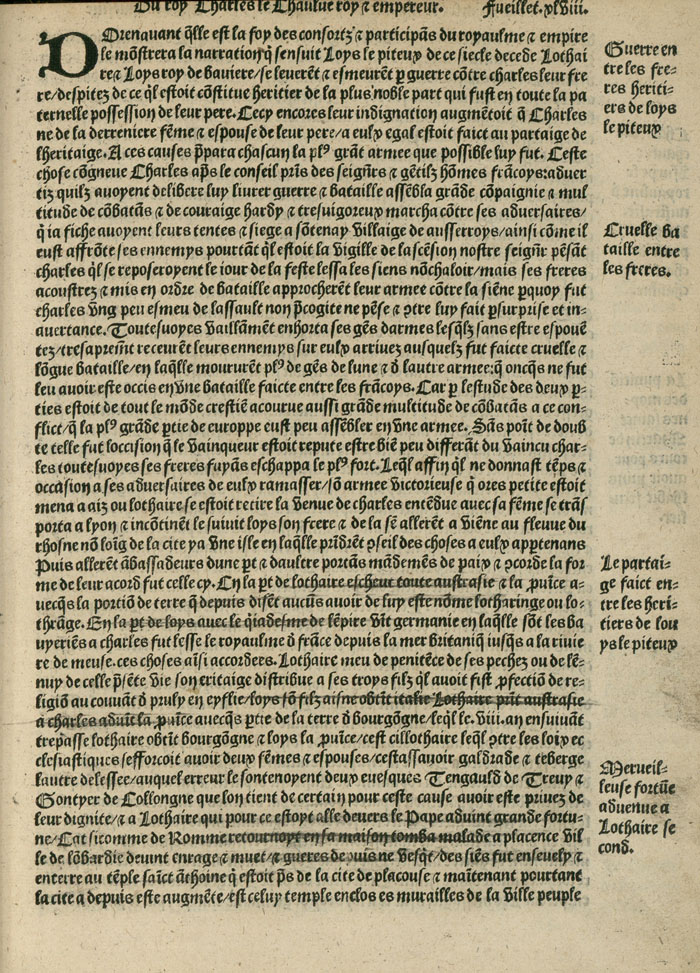 Du roy Charles le Chaulue roy ⁊ empereur. Fueillet. xlviii.
DOrenauant q̃lle est la foy des consortz ⁊ participãs du royaulme ⁊ empire
le mõstrera la narration q̃ sensuit Loys le piteux de ce siecle decede Lothai
re ⁊ Loys roy de bauiere/se leuerẽt ⁊ esmeurẽt p guerre cõtre charles leur fre
re/despitez de ce q̃l estoit cõstitue heritier de la plus noble part qui fust en toute la pa
ternelle possession de leur pere. Cecy encores leur indignation augmẽtoit q̃ Charles
ne de la derreniere fẽme ⁊ espouse de leur pere/a eulx egal estoit faict au partaige de
lheritaige. A ces causes p̃para chascun la plꝰ grãt armee que possible luy fut. Ceste
chose cõgneue Charles ap̃s le conseil prĩs des seignr̃s ⁊ gẽtilz hõmes frãcoys:aduer
tiz quilz auoyent delibere luy liurer guerre ⁊ bataille assẽbla grãde cõpaignie ⁊ mul
titude de cõbatãs ⁊ de couraige hardy ⁊ tresuigoreux marcha cõtre ses aduersaires/
q̃ ia fiche auoyent leurs tentes ⁊ siege a sõtenay villaige de ausserroys/ainsi cõme il
eust affrõte ses ennemys pourtãt q̃l estoit la vigille de lascẽsion nostre seignr̃ pẽsãt
charles q̃l se reposeroyent le iour de la feste lessa les siens nõchaloir/mais ses freres
acoustrez ⁊ mis en ordre de bataille approcherẽt leur armee cõtre la siẽne pquoy fut
charles vng peu esmeu de lassault non p̃cogite ne pẽse ⁊ ꝯtre luy fait p surprise et in-
auertance. Toutesuoyes vaillãmẽt enhorta ses gẽs darmes lesq̃lz sans estre espouẽ
tez/tresapremt̃ receurẽt leurs ennemys sur eulx arriuez ausquelz fut faicte cruelle ⁊
lõgue bataille/en laq̃lle moururẽt plꝰ de gẽs de lune ⁊ d̃ lautre armee:q̃ oncq̃s ne fut
leu auoir este occis en vne bataille faicte entre les frãcoys. Car p lestude des deux p-
ties estoit de tout le mõde crestiẽ acourue aussi grãde multitude de cõbatãs a ce con-
flict/q̃ la plꝰ grãde ptie de europpe eust peu assẽbler en vne armee. Sãs poĩt de doub
te telle fut loccision q̃ le vainqueur estoit repute estre biẽ peu differãt du vaincu char-
les toutesuoyes ses freres fuyãs eschappa le plꝰ fort. Leq̃l affin q̃l ne donnast tẽps ⁊
occasion a ses aduersaires de eulx ramasser/sõ armee victorieuse q̃ ores petite estoit
mena a aiz ou lothaire se estoit retire la venue de charles entẽdue auec sa fẽme se trãs
porta a lyon ⁊ incõtinẽt le suiuit loys son frere ⁊ de la sẽ allerẽt a viẽne au fleuue du
rhosne nõ loĩg de la cite ya vne isle en laq̃lle prĩdrẽt ꝯseil des choses a eulx apptenans
Puis allerẽt ãbassadeurs dune pt ⁊ daultre portãs mãdemẽs de paix ⁊ ꝯcorde la for
me de leur acord fut celle cy. En la pt de lothaire escheut toute austrasie ⁊ la ꝓuĩce a-
uecq̃s la portiõ de terre q̃ depuis disẽt aucũs auoir de luy este nõme lotharinge ou lo-
thrãge. En la pt de loys auec le q̃iadesme de lẽpire vĩt germanie en laq̃lle sõt les ba
uyeriẽs a charles fut lesse le royaulme d̃ frãce depuis la mer britaniq̃ iusq̃s a la riuie
re de meuse. ces choses aĩsi accorders. Lothaire meu de penitẽce de ses pechez ou de lẽ-
nuy de celle p̃sẽte vie son eritaige distribue a ses troys filz q̃l auoit fist ꝓfectiõ de re-
ligiõ au couuãt d̃ pruly en eyflie/loys sõ filz aisne obtĩt italie Lothaire prĩt austrasie
a charles aduĩt la ꝓuĩce auecq̃s ptie de la terre d̃ bourgõgne/leq̃l le. viii. an ensuiuãt
trepasse lothaire obtĩt bourgõgne ⁊ loys la ꝓuĩce/cest cil lothaire leq̃l ꝯtre les loix ec
clesiastiques sefforcoit auoir deux fẽmes ⁊ espouses/cestassauoir galdrade ⁊ teberge
lautre delessee/auquel erreur le sontenoyent deux euesques Tengauld de Treuy ⁊
Gontyer de Collongne que lon tient de certain pour ceste cause auoir este priuez de
leur dignite/⁊ a Lothaire qui pour ce estoyt alle deuers le Pape aduint grande fortu-
ne/Cat sicomme de Romme retournoyt en sa maison tomba malade a placence vil
le de lõbardie deuint enrage ⁊ muet/⁊ gueres depuis ne vesq̃t/des siẽs fut enseuely ⁊
enterre au tẽple saĩct ãthoine q̃ estoit p̃s de la cite de placouse ⁊ maĩtenant pourtant
la cite a depuis este augmẽte/est celuy temple enclos es murailles de la ville peuple
Guerre en
tre les fre-
res heriti-
ers de loys
le piteux
Cruelle ba
taille entre
les freres.
Le partai-
ge faict en-
tre les heri-
tiers de lou
ys le piteux
Merueil-
leuse fortũe
aduenue a
Lothaire se
cond.